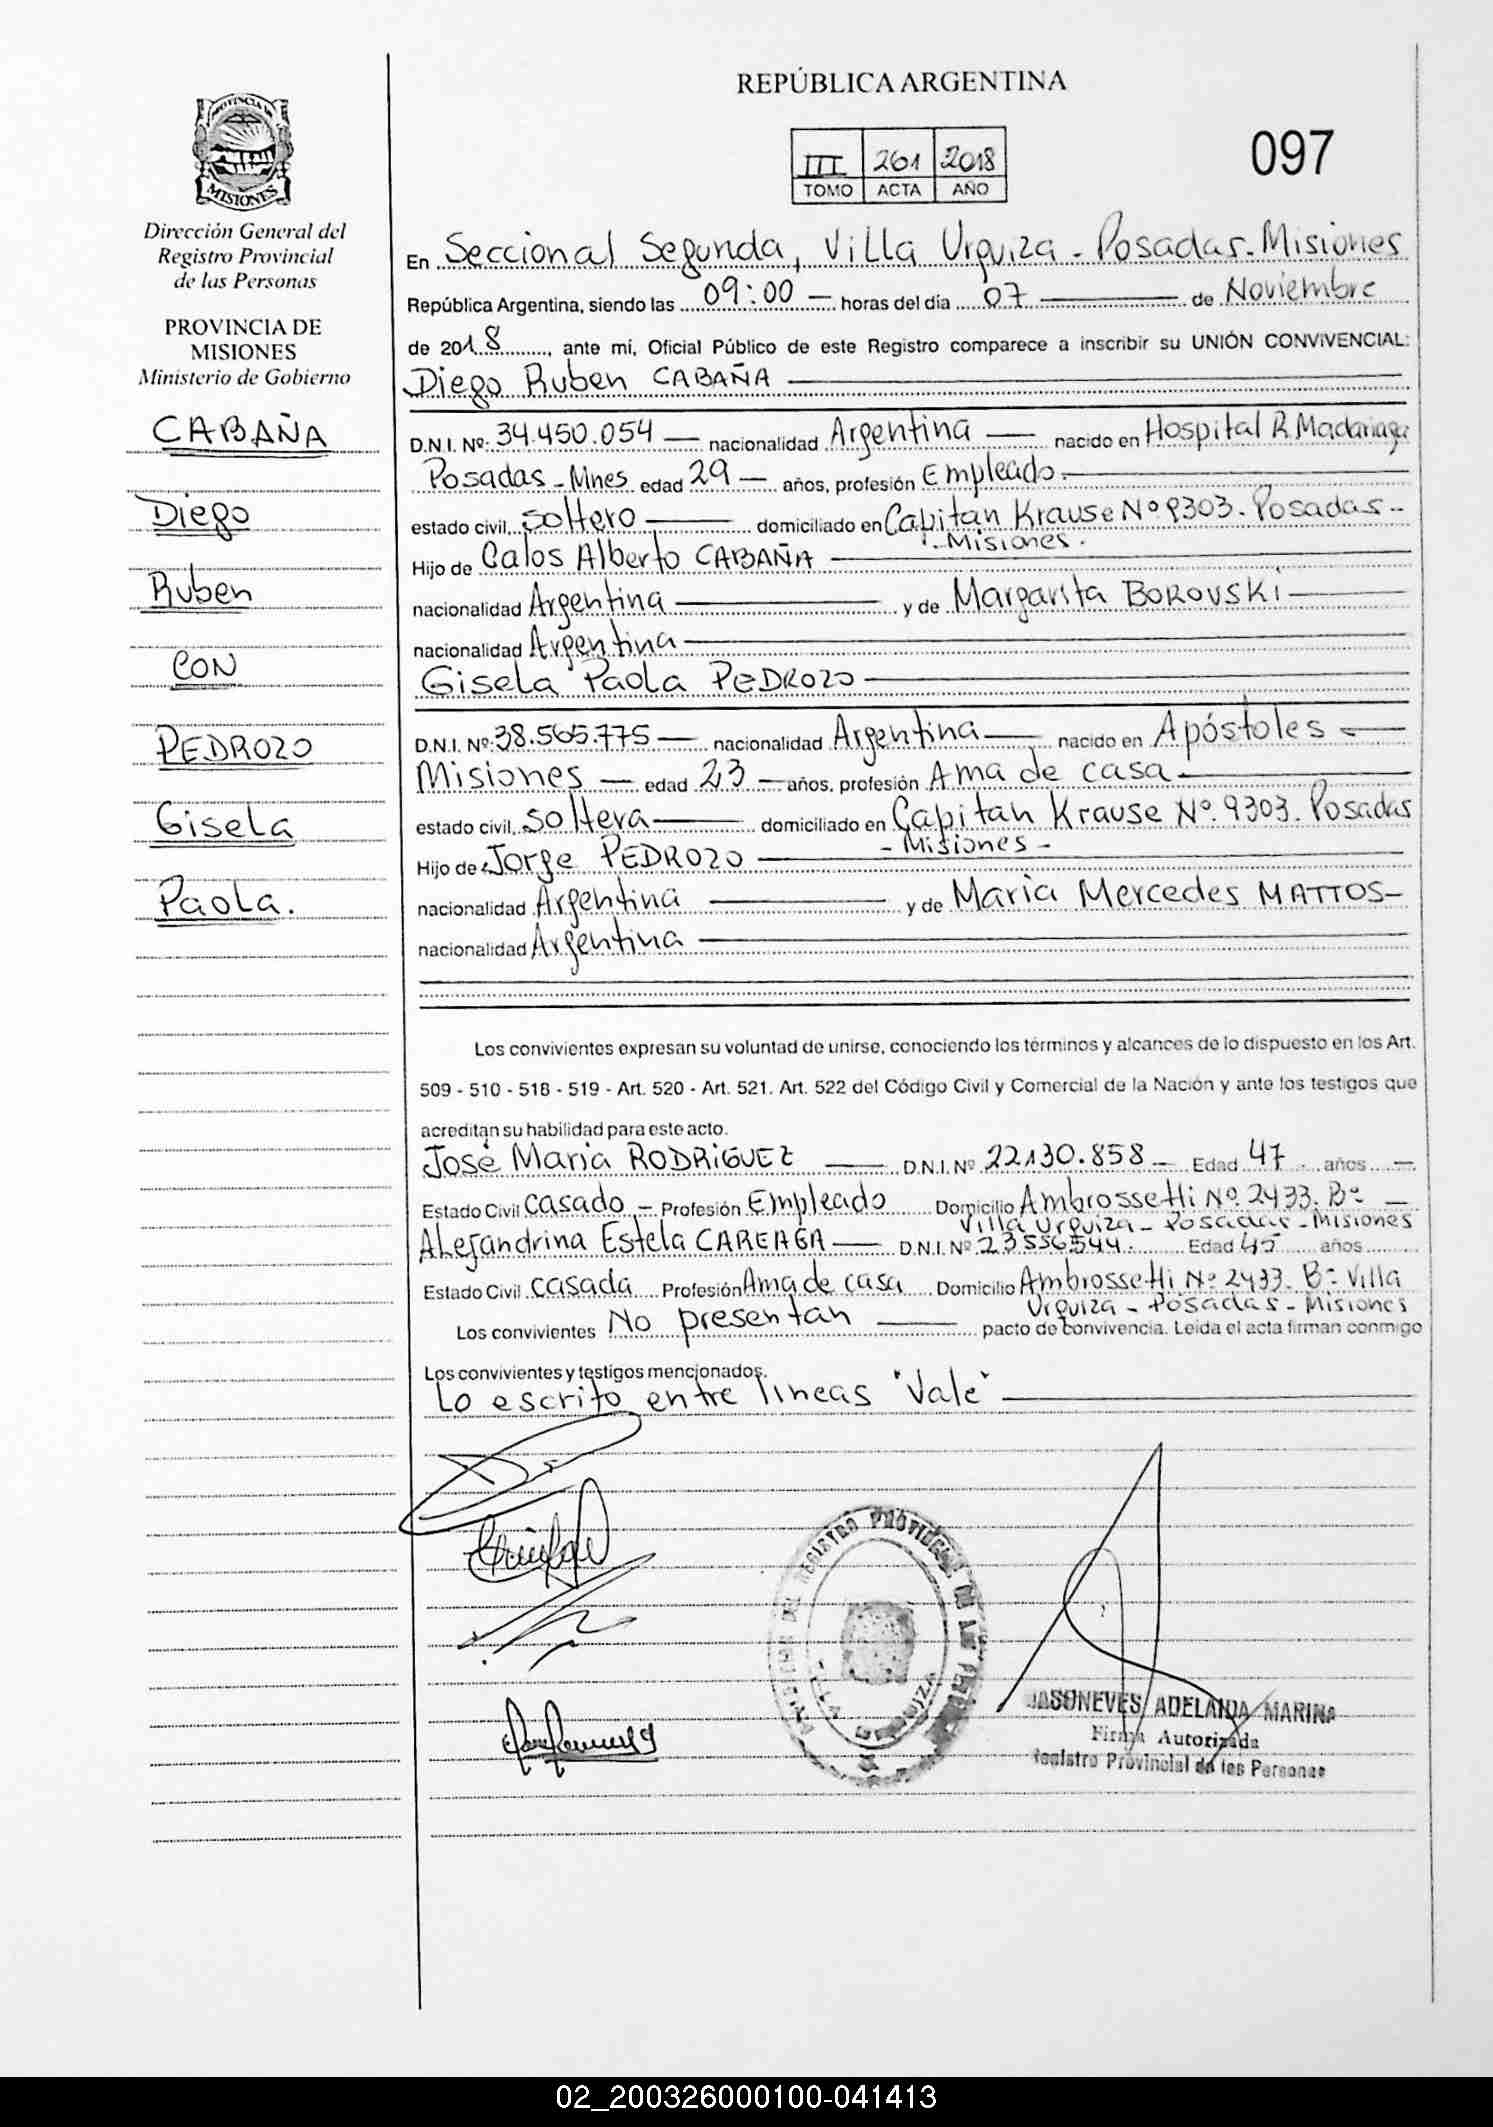 REPÚBLICA ARGENTINA
PROVINCIA DE
MISIONES
III 261 2018
TOMO ACTA AÑO
097
Dirección General del
Registro Provincial
de las Personas
PROVINCIA DE
MISIONES
Ministerio de Gobierno
CABAÑA
Diego
Ruben
CON
PEDROZO
Gisela
Paola.
En Seccional Segunda, Villa Urquiza - Posadas. Misiones
República Argentina, siendo las 09:00 — horas del día 07 — de Noviembre
de 2018, ante mi, Oficial Público de este Registro comparece a inscribir su UNIÓN CONVIVENCIAL:
Diego Ruben CABAÑA —
D.N.I. Nº: 34.450.054 — nacionalidad Argentina — nacido en Hospital R. Madariaga
Posadas - Mnes edad 29 — años, profesión Empleado. —
estado civil, Soltero — domiciliado en Capitan Krause Nº 9303. Posadas -
- Misiones.
Hijo de Calos Alberto CABAÑA —
nacionalidad Argentina — y de Margarita BOROVSKI —
nacionalidad Argentina —
Gisela Paola PEDROZO —
D.N.I. Nº: 38.565.775 — nacionalidad Argentina — nacido en Apóstoles —
Misiones — edad 23 — años, profesión Ama de casa —
estado civil, Soltera — domiciliado en Capitan Krause Nº. 9303. Posadas
- Misiones -
Hijo de Jorge PEDROZO —
nacionalidad Argentina — y de Maria Mercedes MATTOS —
nacionalidad Argentina —
Los convivientes expresan su voluntad de unirse, conociendo los términos y alcances de lo dispuesto en los Art.
509 - 510 - 518 - 519 - Art. 520 - Art. 521. Art. 522 del Código Civil y Comercial de la Nación y ante los testigos que
acreditan su habilidad para este acto.
José Maria RODRIGUEZ — D.N.I. Nº 22.130.858 — Edad 47 años —
Estado Civil Casado — Profesión Empleado Domicilio Ambrossetti Nº. 2433. Bº —
Villa Urquiza - Posadas - Misiones
Alejandrina Estela CAREAGA — D.N.I. Nº 23556544. Edad 45 años
Estado Civil Casada Profesión Ama de casa Domicilio Ambrossetti Nº 2433. Bº Villa
Urquiza - Posadas - Misiones
Los convivientes No presentan — pacto de convivencia. Leída el acta firman conmigo
Los convivientes y testigos mencionados.
Lo escrito entre lineas "Vale" —
REGISTRO PROVINCIAL DE LAS
JASONEVES ADELAIDA MARINA
Firma Autorizada
Registro Provincial de las Personas
02_200326000100-041413